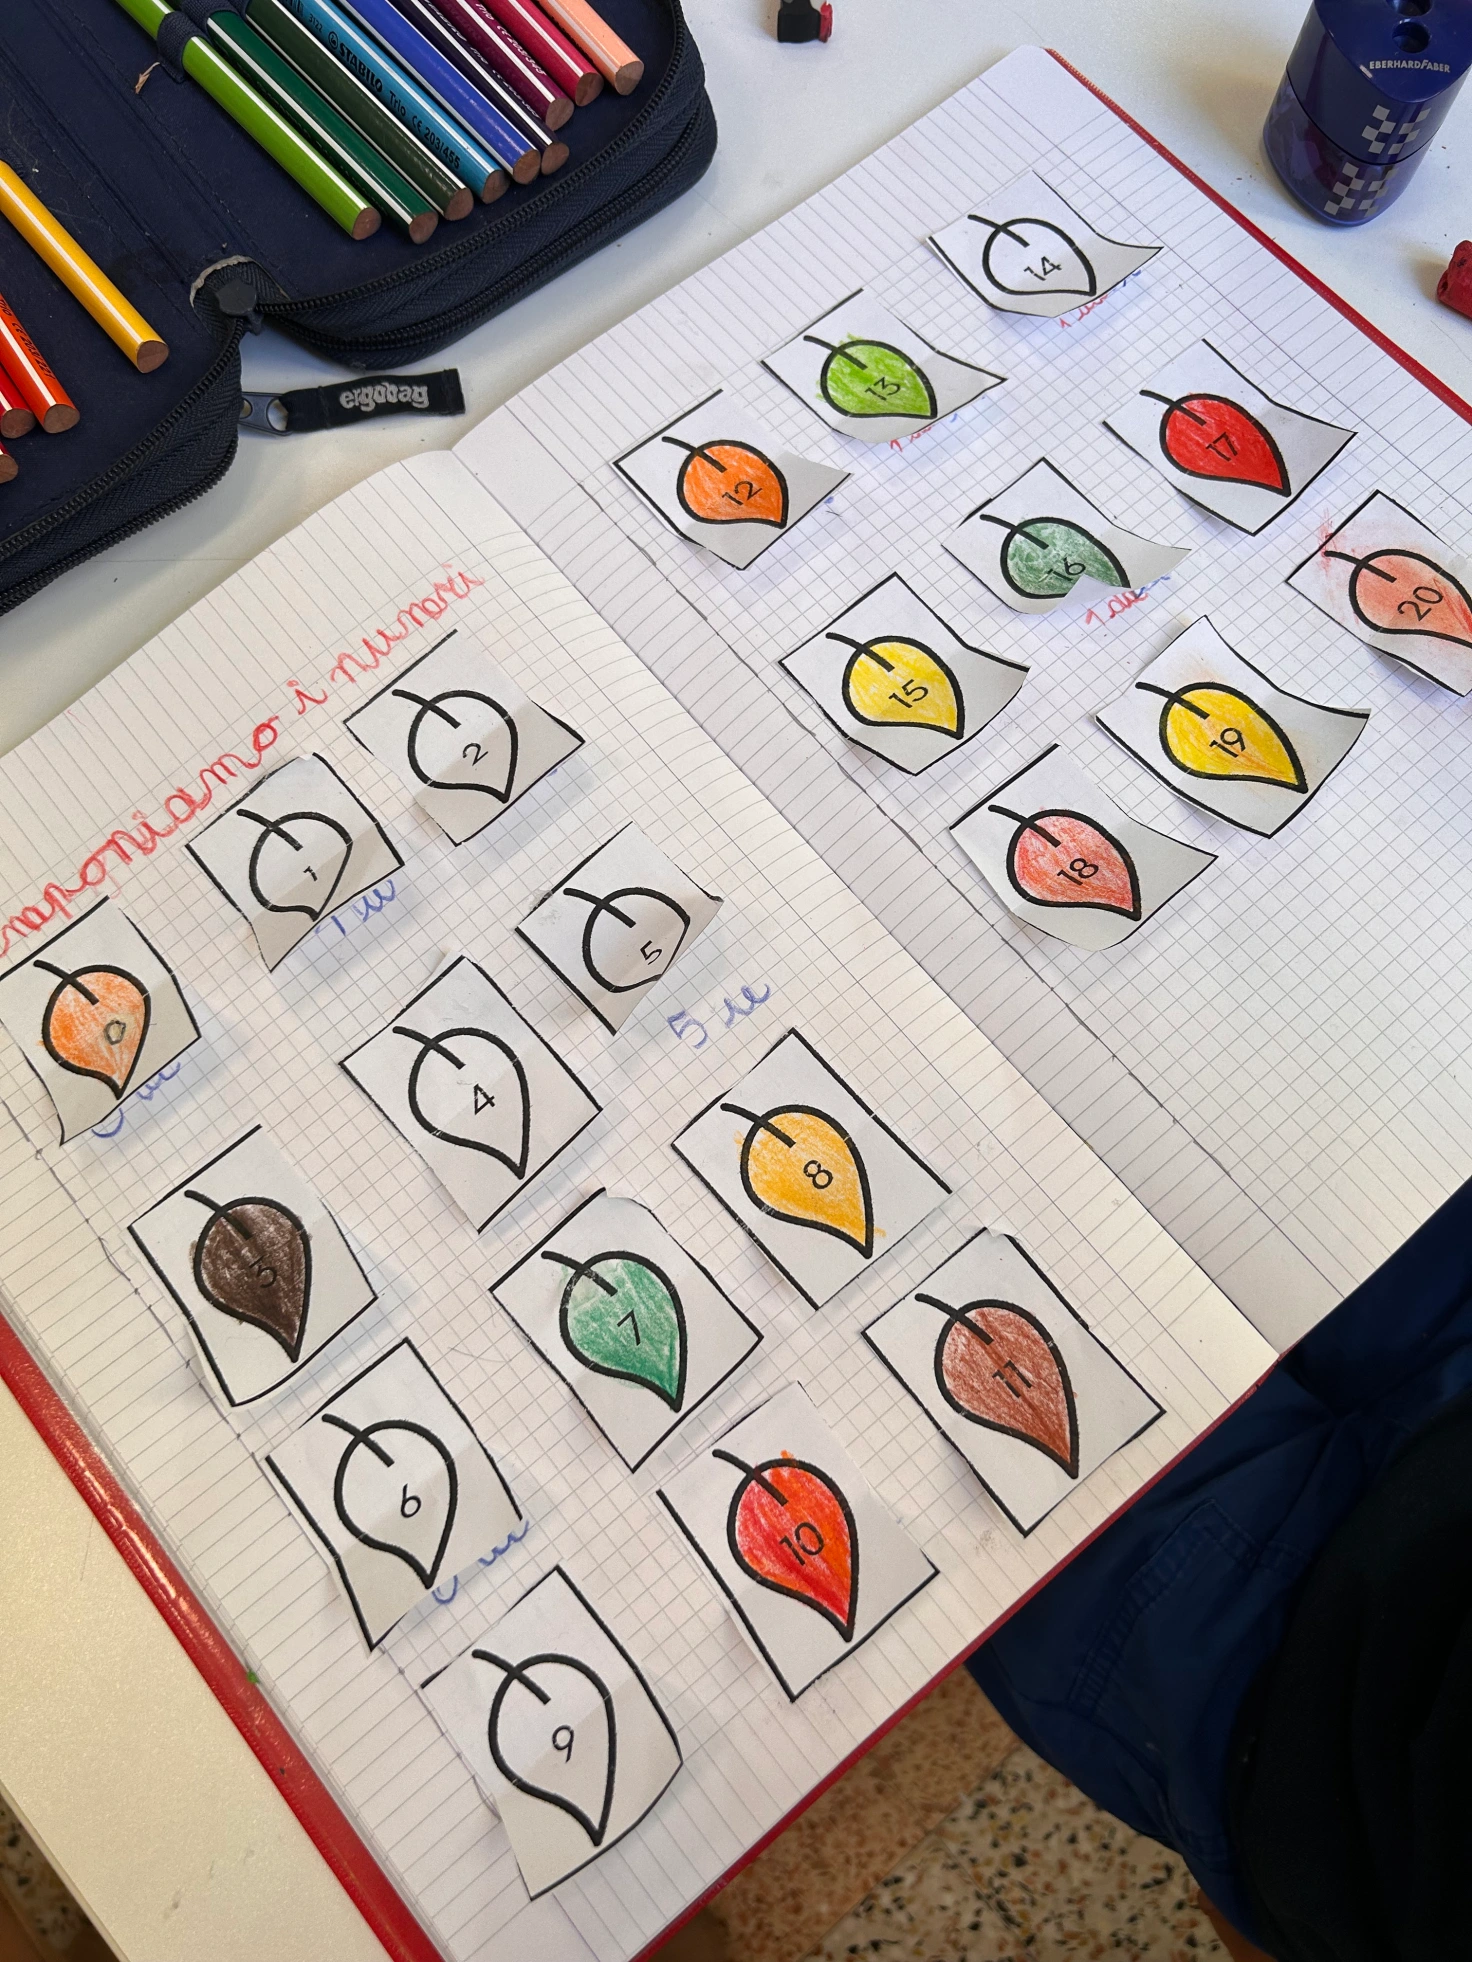 STABILO Trio CE 203/455
EBERHARDFABER
ergobag
i numeri
0
1
1 u
2
3
4
5
5 u
6
7
8
9
10
11
12
13
14
15
16
1 da
17
18
19
20